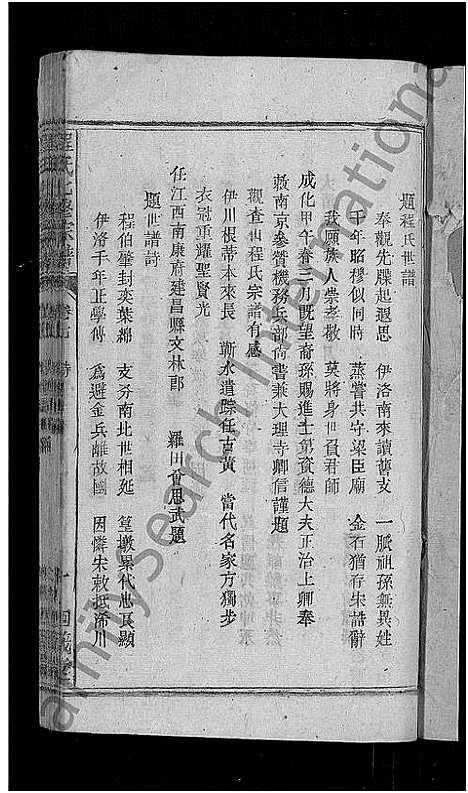 題程氏世譜
奉觀先牒起遐思　伊洛南來讀舊支　一脈祖孫無異姓
千年昭穆似同時　蒸嘗共守梁臣廟　金石猶存朱誥辭
我願族人崇孝敬　莫將身世負君師
成化甲午春三月既望裔孫賜進士第資德大夫正治上卿奉
敕南京參贊機務兵部尚書兼大理寺卿信謹題
觀查山程氏宗譜有感
伊川根蒂本來長　蘄水遺踪任古黃　當代名家方獨步
衣冠重耀聖賢光
任江西南康府建昌縣文林郎　羅田　思武題
題世譜詩
程伯肇封奕葉綿　支分南北世相延　篁墩累代忠良顯
伊洛千年正學傳　為避金兵離故國　因憐朱敕抵浠川
FamilySearch International